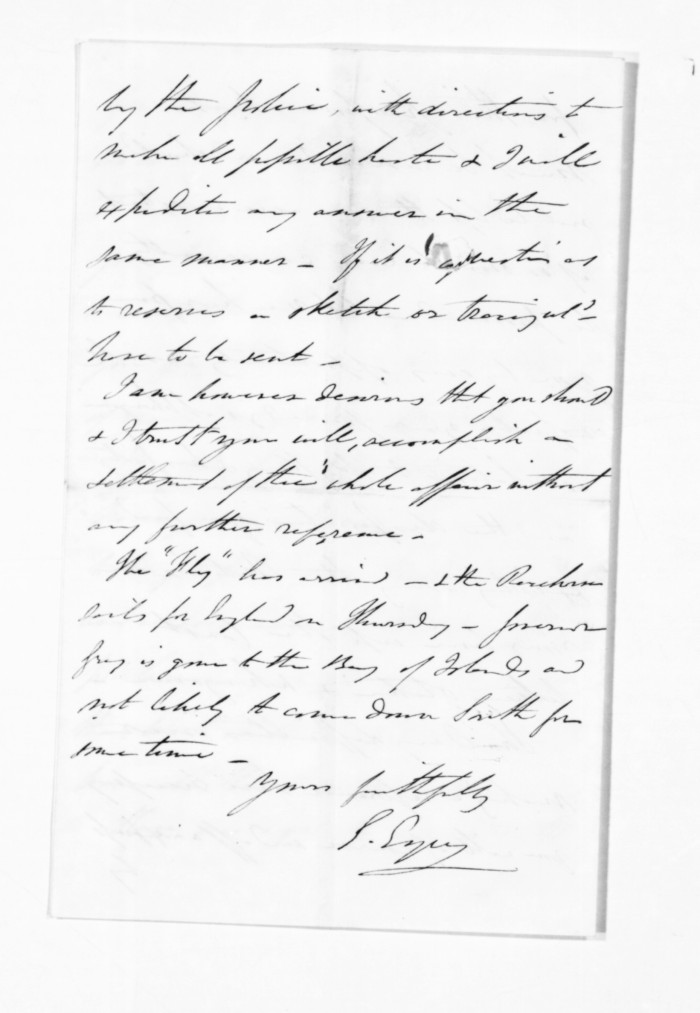 by the police, with directions to
make all possible haste & I will
expedite any answer in the
same manner — If it is a question as
to reserves a sketch or tracing wld
have to be sent —
I am however desirous tht you should
& I trust you will, accomplish a
settlement of the whole affair without
any further reference —
The "Fly" has arrived — & the Racehorse
sails for England on Thursday — Governor
Grey is gone to the Bay of Islands and
not likely to come down South for
some time —
Yours faithfully
E. Eyre